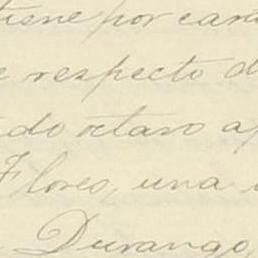 tiene por
respecto
octavo
Flores, una
Durango,